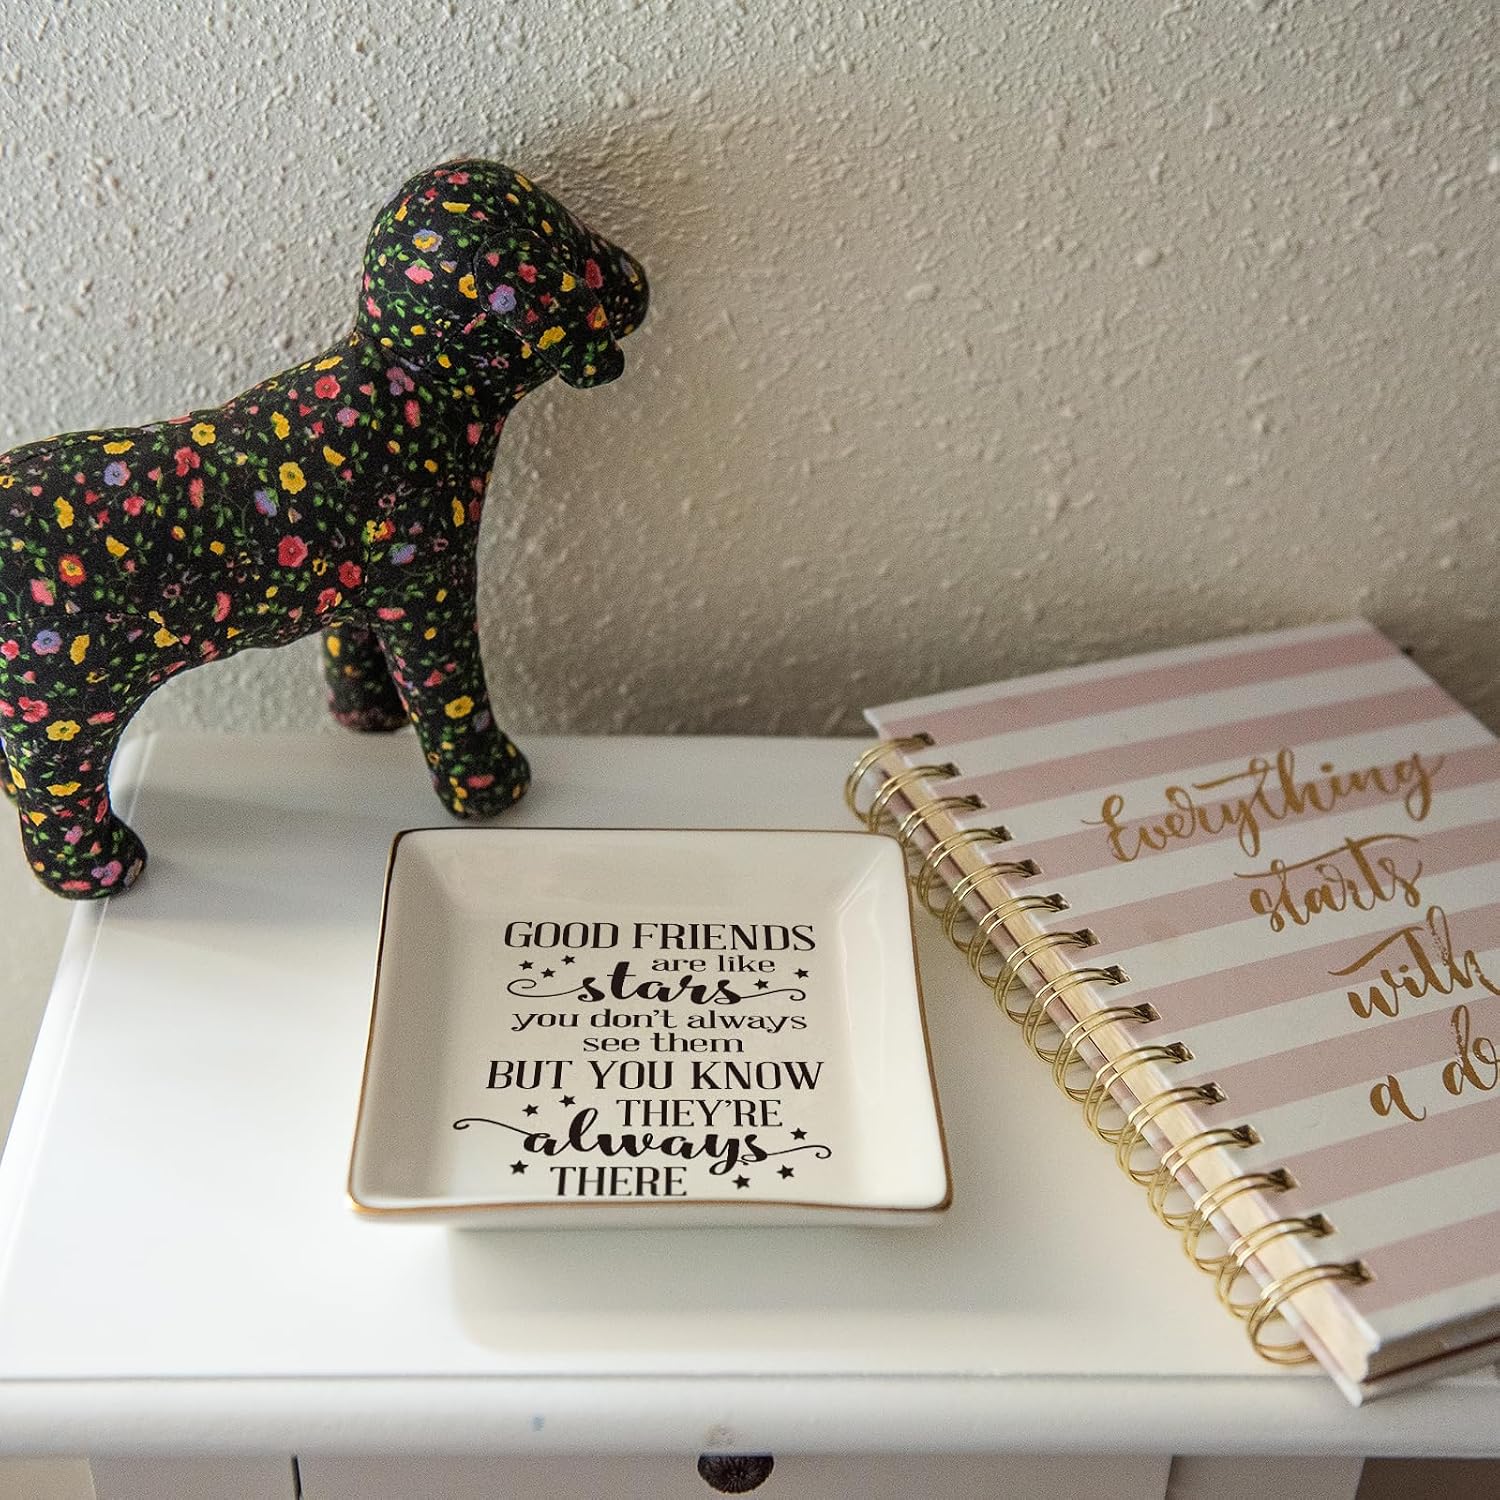 GOOD FRIENDS
are like
stars
you don't always
see them
BUT YOU KNOW
THEY'RE
always
THERE
Everything
starts
with
a